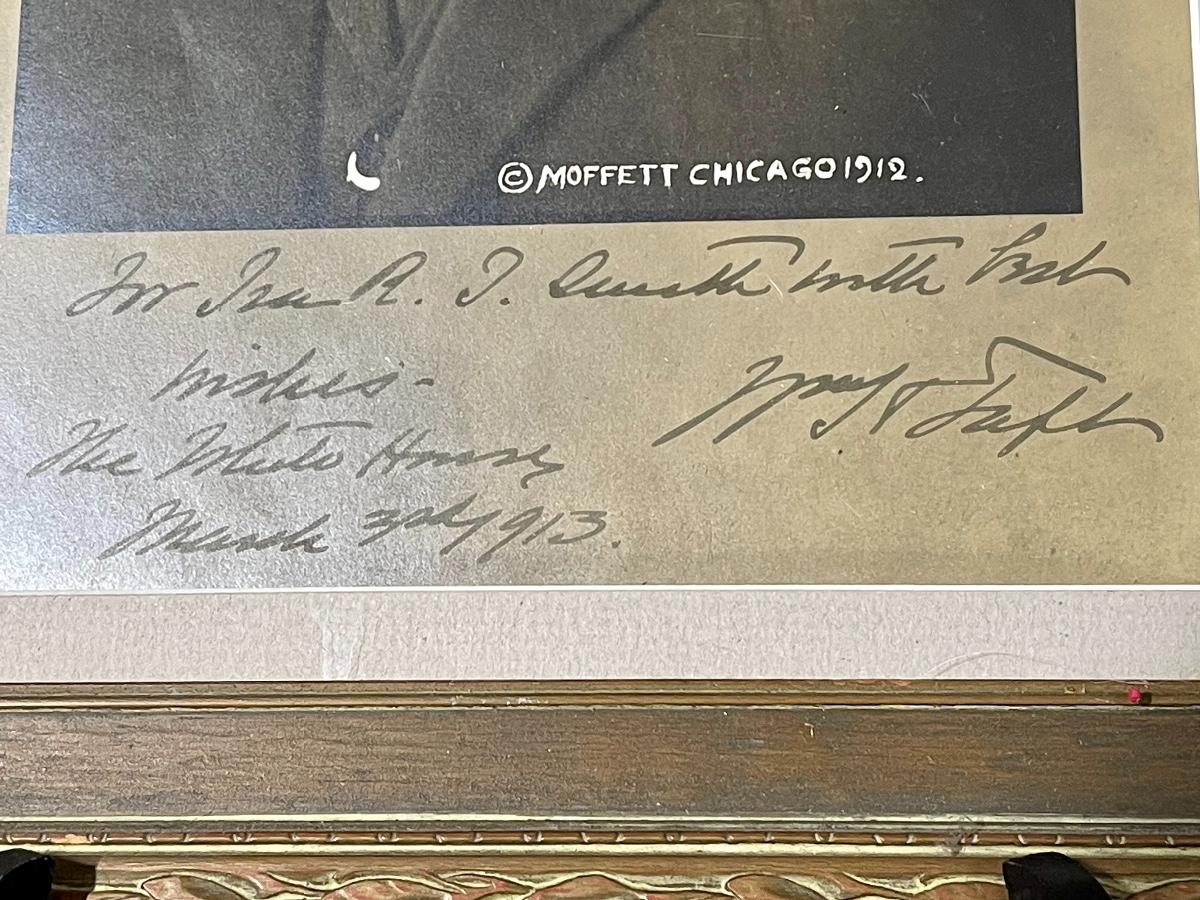 © MOFFETT CHICAGO 1912.
For Ira R. T. Smith with best
wishes-
Wm H Taft
The White House,
March 3rd, 1913.